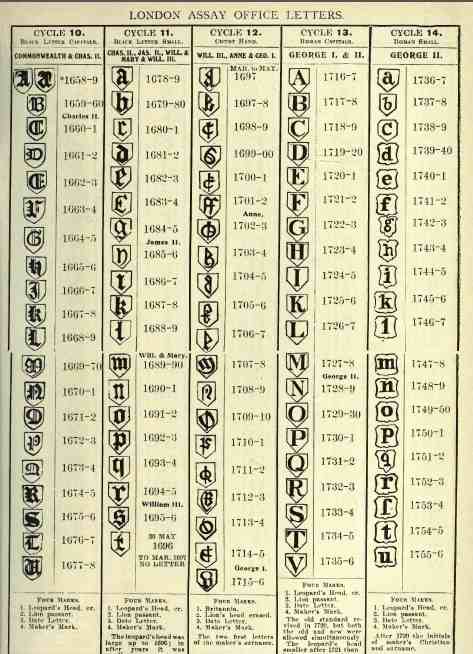 LONDON ASSAY OFFICE LETTERS.
CYCLE 10.
BLACK LETTER CAPITALS.
COMMONWEALTH & CHAS. II.
A A *1658-9
B 1659-60
Charles II.
C 1660-1
D 1661-2
E 1662-3
F 1663-4
G 1664-5
H 1665-6
J 1666-7
K 1667-8
L 1668-9
M 1669-70
N 1670-1
O 1671-2
P 1672-3
Q 1673-4
R 1674-5
S 1675-6
T 1676-7
U 1677-8
FOUR MARKS.
1. Leopard's Head, cr.
2. Lion passant.
3. Date Letter.
4. Maker's Mark.
CYCLE 11.
BLACK LETTER SMALL.
CHAS. II., JAS. II., WILL. &
MARY & WILL. III.
a 1678-9
b 1679-80
c 1680-1
d 1681-2
e 1682-3
f 1683-4
g 1684-5
James II.
h 1685-6
i 1686-7
k 1687-8
l 1688-9
Will. & Mary.
m 1689-90
n 1690-1
o 1691-2
p 1692-3
q 1693-4
r 1694-5
William III.
s 1695-6
t 30 MAY
1696
TO MAR. 1697
NO LETTER
FOUR MARKS.
1. Leopard's Head, cr.
2. Lion passant.
3. Date Letter.
4. Maker's Mark.
The leopard's head was
large up to 1680; in
after years it was
CYCLE 12.
COURT HAND.
WILL. III., ANNE & GEO. I.
MAR. to MAY.
1697
1697-8
1698-9
1699-00
1700-1
1701-2
Anne.
1702-3
1703-4
1704-5
1705-6
1706-7
1707-8
1708-9
1709-10
1710-1
1711-2
1712-3
1713-4
1714-5
George I.
1715-6
FOUR MARKS.
1. Britannia.
2. Lion's head erased.
3. Date Letter.
4. Maker's Mark.
The two first letters
of the maker's surname.
CYCLE 13.
ROMAN CAPITAL.
GEORGE I. & II.
A 1716-7
B 1717-8
C 1718-9
D 1719-20
E 1720-1
F 1721-2
G 1722-3
H 1723-4
I 1724-5
K 1725-6
L 1726-7
M 1727-8
George II.
N 1728-9
O 1729-30
P 1730-1
Q 1731-2
R 1732-3
S 1733-4
T 1734-5
V 1735-6
FOUR MARKS.
1. Leopard's Head, cr.
2. Lion passant.
3. Date Letter.
4. Maker's Mark.
The old standard re-
vived in 1720, but both
the old and new were
allowed simultaneously
The leopard's head
smaller after 1721 than
CYCLE 14.
ROMAN SMALL.
GEORGE II.
a 1736-7
b 1737-8
c 1738-9
d 1739-40
e 1740-1
f 1741-2
g 1742-3
h 1743-4
i 1744-5
k 1745-6
l 1746-7
m 1747-8
n 1748-9
o 1749-50
p 1750-1
q 1751-2
r 1752-3
s 1753-4
t 1754-5
u 1755-6
FOUR MARKS.
1. Leopard's Head, cr.
2. Lion passant.
3. Date Letter.
4. Maker's Mark.
After 1739 the initials
of maker's Christian
and surname.